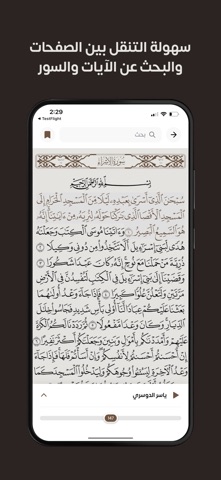 سهولة التنقل بين الصفحات
والبحث عن الآيات والسور
2:29
TestFlight
بحث
سورة الإسراء
بسم الله الرحمن الرحيم
سبحن الذي أسرى بعبده ليلا من المسجد الحرام إلى
المسجد الأقصا الذي بركنا حوله لنريه من ءايتنا إنه
هو السميع البصير ١ وءاتينا موسى الكتب وجعلنه
هدى لبني إسرءيل ألا تتخذوا من دوني وكيلا ٢
ذرية من حملنا مع نوح إنه كان عبدا شكورا ٣
وقضينا إلى بني إسرءيل في الكتب لتفسدن في الأرض
مرتين ولتعلن علوا كبيرا ٤ فإذا جاء وعد أولىهما
بعثنا عليكم عبادا لنا أولي بأس شديد فجاسوا خلل
الديار وكان وعدا مفعولا ٥ ثم رددنا لكم الكرة
عليهم وأمددنكم بأمول وبنين وجعلنكم أكثر نفيرا ٦
إن أحسنتم أحسنتم لأنفسكم وإن أسأتم فلها فإذا
جاء وعد الأخرة ليسوا وجوهكم وليدخلوا المسجد كما
ياسر الدوسري